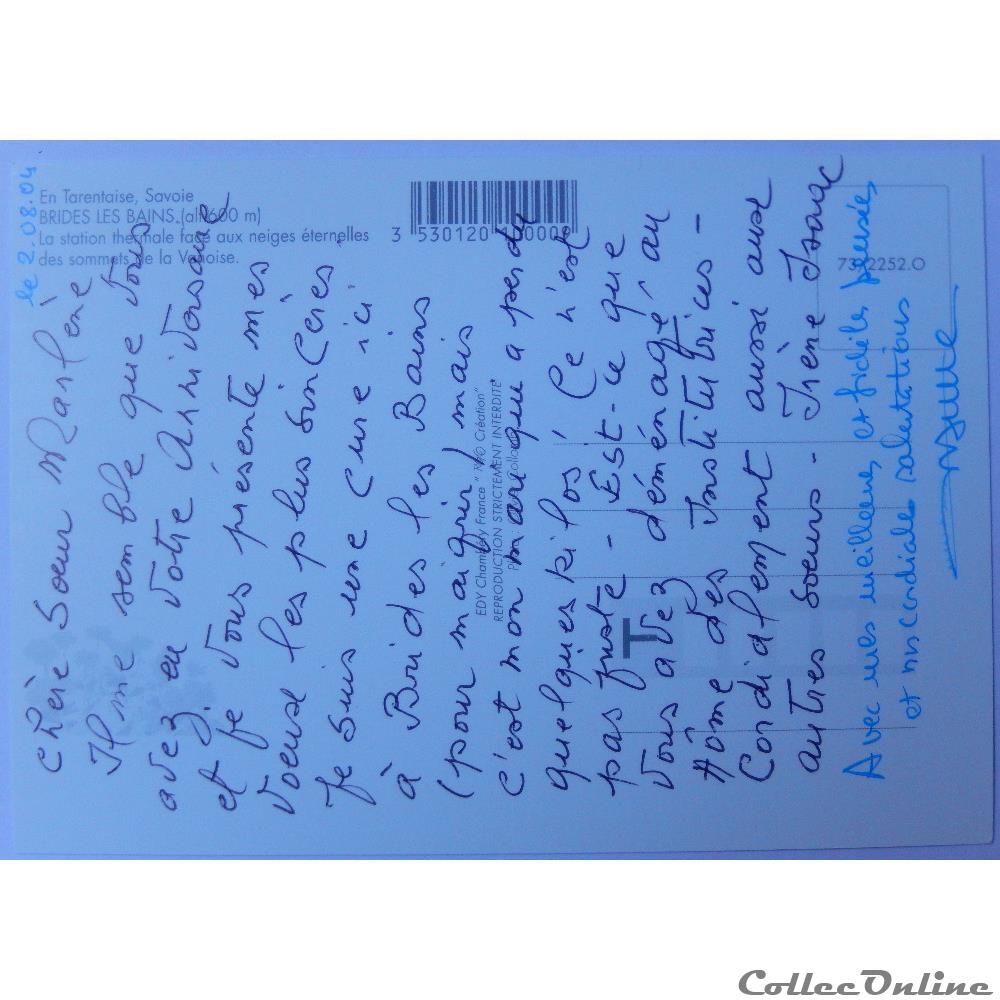 le 2.08.04
En Tarentaise, Savoie
BRIDES LES BAINS (alt 600 m)
La station thermale face aux neiges éternelles
des sommets de la Vanoise.
3 530120 000
73 2252.O
EDY Chambéry France "
Création"
REPRODUCTION STRICTEMENT INTERDITE
chère Soeur Marlène
Il me semble que vous
avez eu votre Anniversaire
et je vous présente mes
voeux les plus sincères.
Je suis une cure ici
à Brides les Bains
(pour maigrir) mais
c'est mon mari qui a perdu
quelques kilos! Ce n'est
pas juste - Est-ce que
vous avez déménagé au
Hôme des Institutrices -
Cordialement aussi aux
autres soeurs - Irène Isaac
Avec mes meilleures et fidèles pensées
et mes cordiales salutations
T
CollecOnline